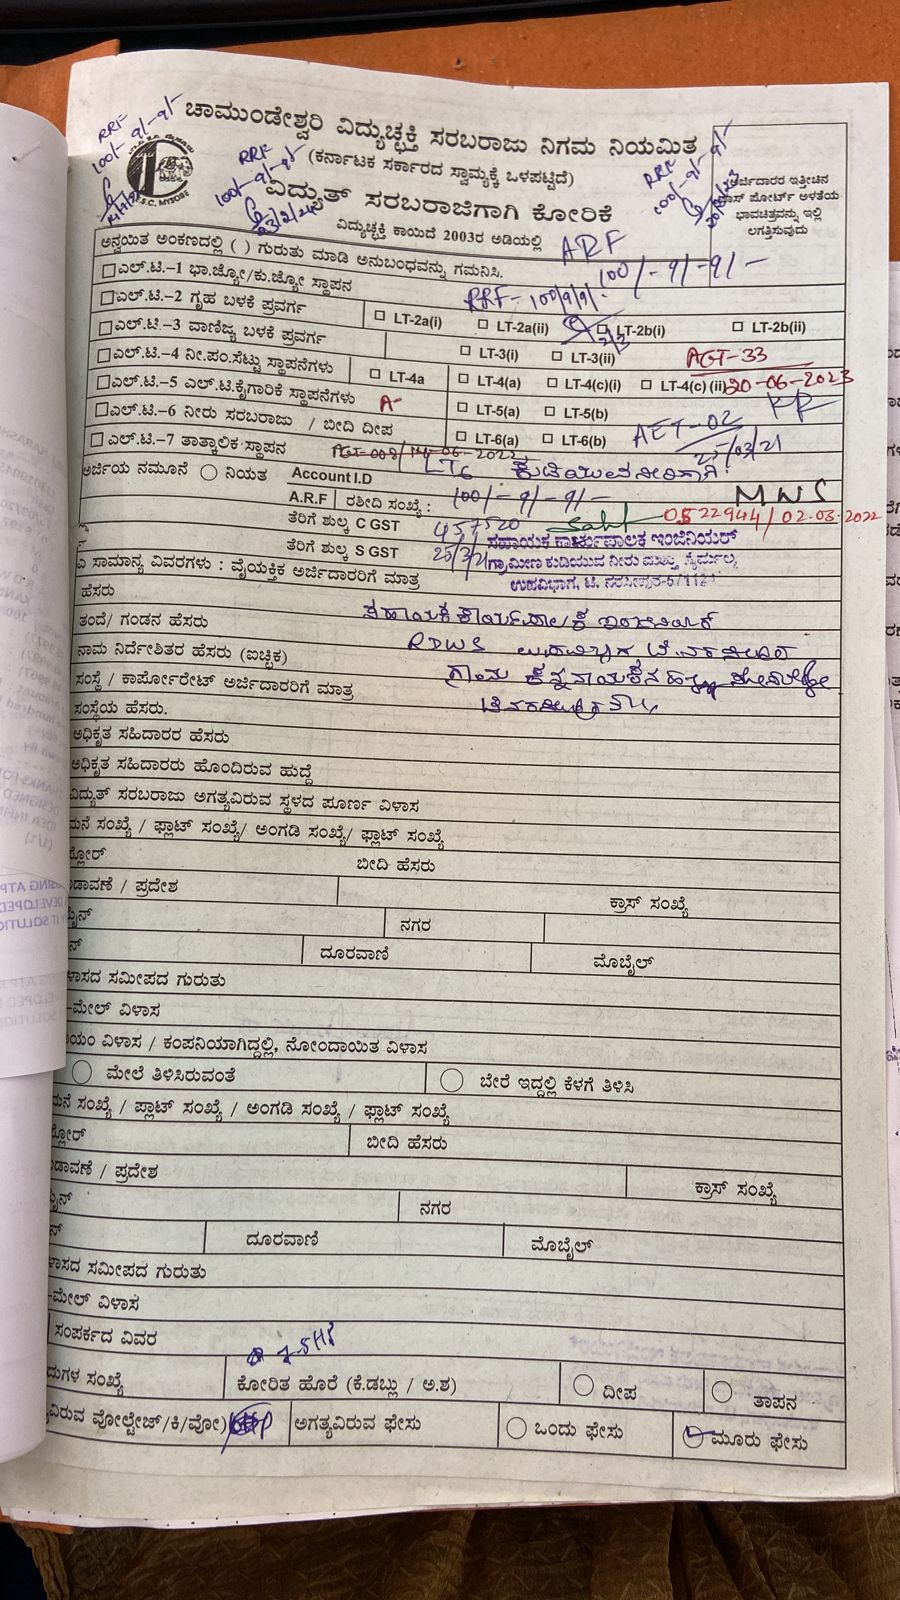 ಚಾಮುಂಡೇಶ್ವರಿ ವಿದ್ಯುಚ್ಛಕ್ತಿ ಸರಬರಾಜು ನಿಗಮ ನಿಯಮಿತ
(ಕರ್ನಾಟಕ ಸರ್ಕಾರದ ಸ್ವಾಮ್ಯಕ್ಕೆ ಒಳಪಟ್ಟಿದೆ)
ವಿದ್ಯುತ್ ಸರಬರಾಜಿಗಾಗಿ ಕೋರಿಕೆ
ವಿದ್ಯುಚ್ಛಕ್ತಿ ಕಾಯಿದೆ 2003ರ ಅಡಿಯಲ್ಲಿ
RRF
100/-9/-9/-
RRF
100/-9/-9/-
23/2/24
RRF
100/-9/-9/-
ಅರ್ಜಿದಾರರ ಇತ್ತೀಚಿನ
ಪಾಸ್ ಪೋರ್ಟ್ ಅಳತೆಯ
ಭಾವಚಿತ್ರವನ್ನು ಇಲ್ಲಿ
ಲಗತ್ತಿಸುವುದು
ಅನ್ವಯಿತ ಅಂಕಣದಲ್ಲಿ ( ) ಗುರುತು ಮಾಡಿ ಅನುಬಂಧವನ್ನು ಗಮನಿಸಿ.
ARF
100/-9/-9/-
ಎಲ್.ಟಿ.-1 ಭಾ.ಜ್ಯೋ/ಕು.ಜ್ಯೋ ಸ್ಥಾಪನ
RRF-100/9/9/-
ಎಲ್.ಟಿ.-2 ಗೃಹ ಬಳಕೆ ಪ್ರವರ್ಗ LT-2a(i) LT-2a(ii) LT-2b(i) LT-2b(ii)
ಎಲ್.ಟಿ.-3 ವಾಣಿಜ್ಯ ಬಳಕೆ ಪ್ರವರ್ಗ LT-3(i) LT-3(ii) AGT-33
ಎಲ್.ಟಿ.-4 ನೀ.ಪಂ.ಸೆಟ್ಟು ಸ್ಥಾಪನೆಗಳು LT-4a LT-4(a) LT-4(c)(i) LT-4(c) (ii) 20-06-2023
ಎಲ್.ಟಿ.-5 ಎಲ್.ಟಿ.ಕೈಗಾರಿಕೆ ಸ್ಥಾಪನೆಗಳು LT-5(a) LT-5(b)
ಎಲ್.ಟಿ.-6 ನೀರು ಸರಬರಾಜು / ಬೀದಿ ದೀಪ LT-6(a) LT-6(b) AET-02
25/03/21
ಎಲ್.ಟಿ.-7 ತಾತ್ಕಾಲಿಕ ಸ್ಥಾಪನ
LT6 ಕುಡಿಯುವ ನೀರಿಗಾಗಿ
ಅರ್ಜಿಯ ನಮೂನೆ ನಿಯತ Account I.D
MWS
A.R.F ರಶೀದಿ ಸಂಖ್ಯೆ : 100/-9/-9/-
0522944/02-03-2022
ತೆರಿಗೆ ಶುಲ್ಕ C GST 457520
ಸಹಾಯಕ ಕಾರ್ಯಪಾಲಕ ಇಂಜಿನಿಯರ್
ತೆರಿಗೆ ಶುಲ್ಕ S GST 25/3/21
ಗ್ರಾಮೀಣ ಕುಡಿಯುವ ನೀರು ಮತ್ತು ನೈರ್ಮಲ್ಯ
ಉಪವಿಭಾಗ, ಟಿ. ನರಸೀಪುರ-571124
ಎ ಸಾಮಾನ್ಯ ವಿವರಗಳು : ವೈಯಕ್ತಿಕ ಅರ್ಜಿದಾರರಿಗೆ ಮಾತ್ರ
ಹೆಸರು
ಸಹಾಯಕ ಕಾರ್ಯಪಾಲಕ ಇಂಜಿನಿಯರ್
ತಂದೆ/ ಗಂಡನ ಹೆಸರು
RDWS ಉಪವಿಭಾಗ ಟಿ.ನರಸೀಪುರ
ನಾಮ ನಿರ್ದೇಶಿತರ ಹೆಸರು (ಐಚ್ಛಿಕ)
ಗ್ರಾಮ
ಸಂಸ್ಥೆ / ಕಾರ್ಪೋರೇಟ್ ಅರ್ಜಿದಾರರಿಗೆ ಮಾತ್ರ
ಸಂಸ್ಥೆಯ ಹೆಸರು.
ಅಧಿಕೃತ ಸಹಿದಾರರ ಹೆಸರು
ಅಧಿಕೃತ ಸಹಿದಾರರು ಹೊಂದಿರುವ ಹುದ್ದೆ
ವಿದ್ಯುತ್ ಸರಬರಾಜು ಅಗತ್ಯವಿರುವ ಸ್ಥಳದ ಪೂರ್ಣ ವಿಳಾಸ
ಮನೆ ಸಂಖ್ಯೆ / ಫ್ಲಾಟ್ ಸಂಖ್ಯೆ/ ಅಂಗಡಿ ಸಂಖ್ಯೆ/ ಫ್ಲಾಟ್ ಸಂಖ್ಯೆ
ಫ್ಲೋರ್ ಬೀದಿ ಹೆಸರು
ಬಡಾವಣೆ / ಪ್ರದೇಶ ಕ್ರಾಸ್ ಸಂಖ್ಯೆ
ನಗರ
ದೂರವಾಣಿ ಮೊಬೈಲ್
ವಿಳಾಸದ ಸಮೀಪದ ಗುರುತು
-ಮೇಲ್ ವಿಳಾಸ
ವಿಳಾಸ / ಕಂಪನಿಯಾಗಿದ್ದಲ್ಲಿ, ನೋಂದಾಯಿತ ವಿಳಾಸ
ಮೇಲೆ ತಿಳಿಸಿರುವಂತೆ ಬೇರೆ ಇದ್ದಲ್ಲಿ ಕೆಳಗೆ ತಿಳಿಸಿ
ಮನೆ ಸಂಖ್ಯೆ / ಪ್ಲಾಟ್ ಸಂಖ್ಯೆ / ಅಂಗಡಿ ಸಂಖ್ಯೆ / ಫ್ಲಾಟ್ ಸಂಖ್ಯೆ
ಫ್ಲೋರ್ ಬೀದಿ ಹೆಸರು
ಬಡಾವಣೆ / ಪ್ರದೇಶ ಕ್ರಾಸ್ ಸಂಖ್ಯೆ
ನಗರ
ದೂರವಾಣಿ ಮೊಬೈಲ್
ವಿಳಾಸದ ಸಮೀಪದ ಗುರುತು
-ಮೇಲ್ ವಿಳಾಸ
ಸಂಪರ್ಕದ ವಿವರ
7.5HP
ಸಂಖ್ಯೆ ಕೋರಿತ ಹೊರೆ (ಕೆ.ಡಬ್ಲು / ಅ.ಶ) ದೀಪ ತಾಪನ
ವೋಲ್ಟೇಜ್/ಕಿ/ವೋ) ಅಗತ್ಯವಿರುವ ಫೇಸು ಒಂದು ಫೇಸು ಮೂರು ಫೇಸು